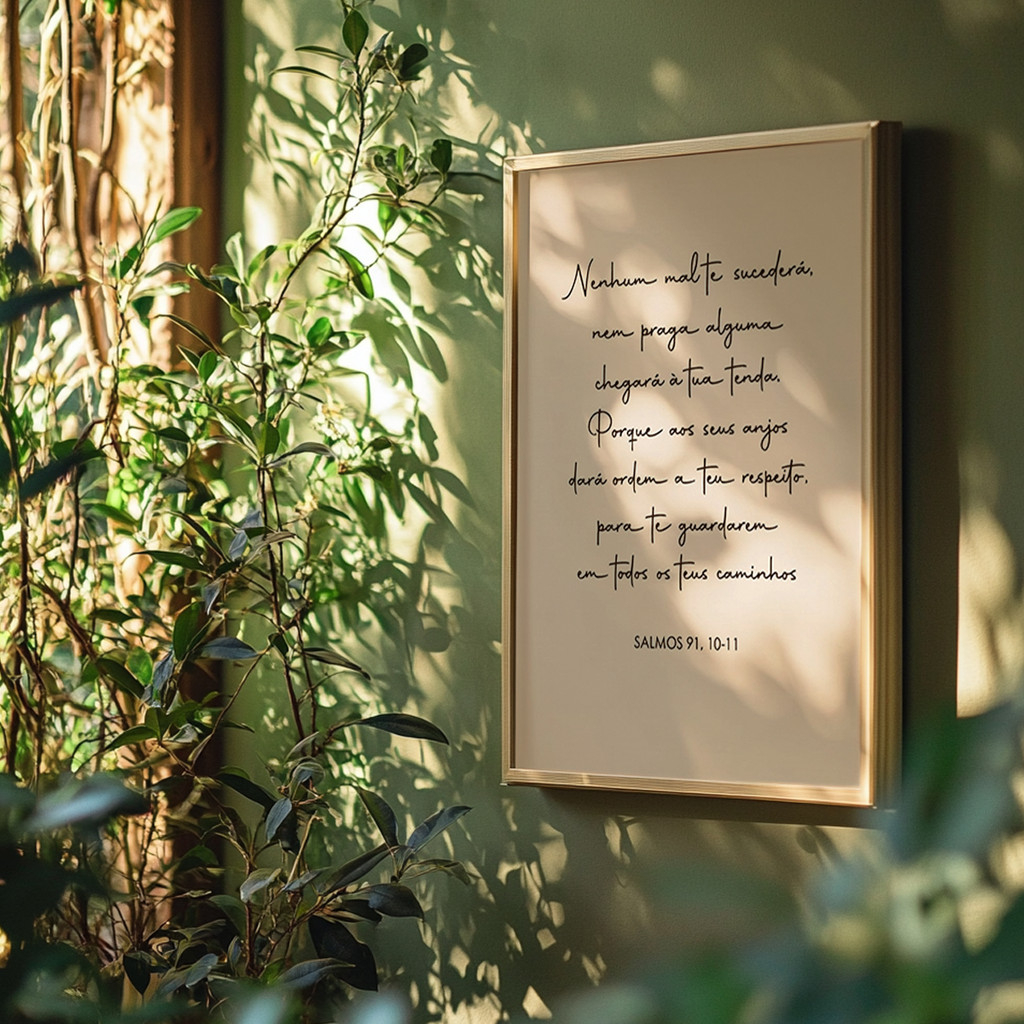 Nenhum mal te sucederá,
nem praga alguma
chegará à tua tenda.
Porque aos seus anjos
dará ordem a teu respeito,
para te guardarem
em todos os teus caminhos
SALMOS 91, 10-11